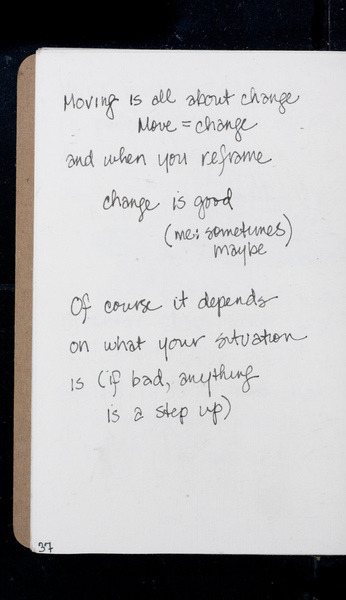 Moving is all about change
Move = change
and when you reframe
change is good
(me: sometimes)
maybe
Of course it depends
on what your situation
is (if bad, anything
is a step up)
37